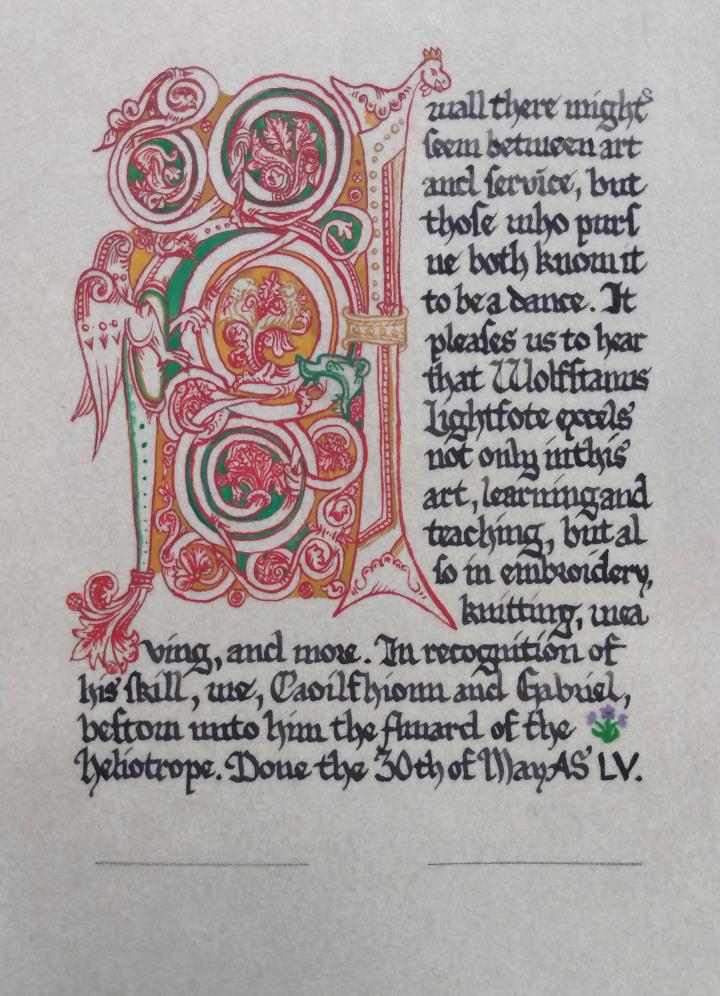 A wall there might
ſeem between art
and ſervice, but
thoſe who purſ
ue both know it
to be a dance. It
pleaſes us to hear
that Wolfſtanus
Lightfote excels
not only in this
art, learning and
teaching, but al
ſo in embroidery,
knitting, wea
ving, and more. In recognition of
his ſkill, we, Caoilfhionn and Gabriel,
beſtow unto him the Award of the
heliotrope. Done the 30th of May AS LV.